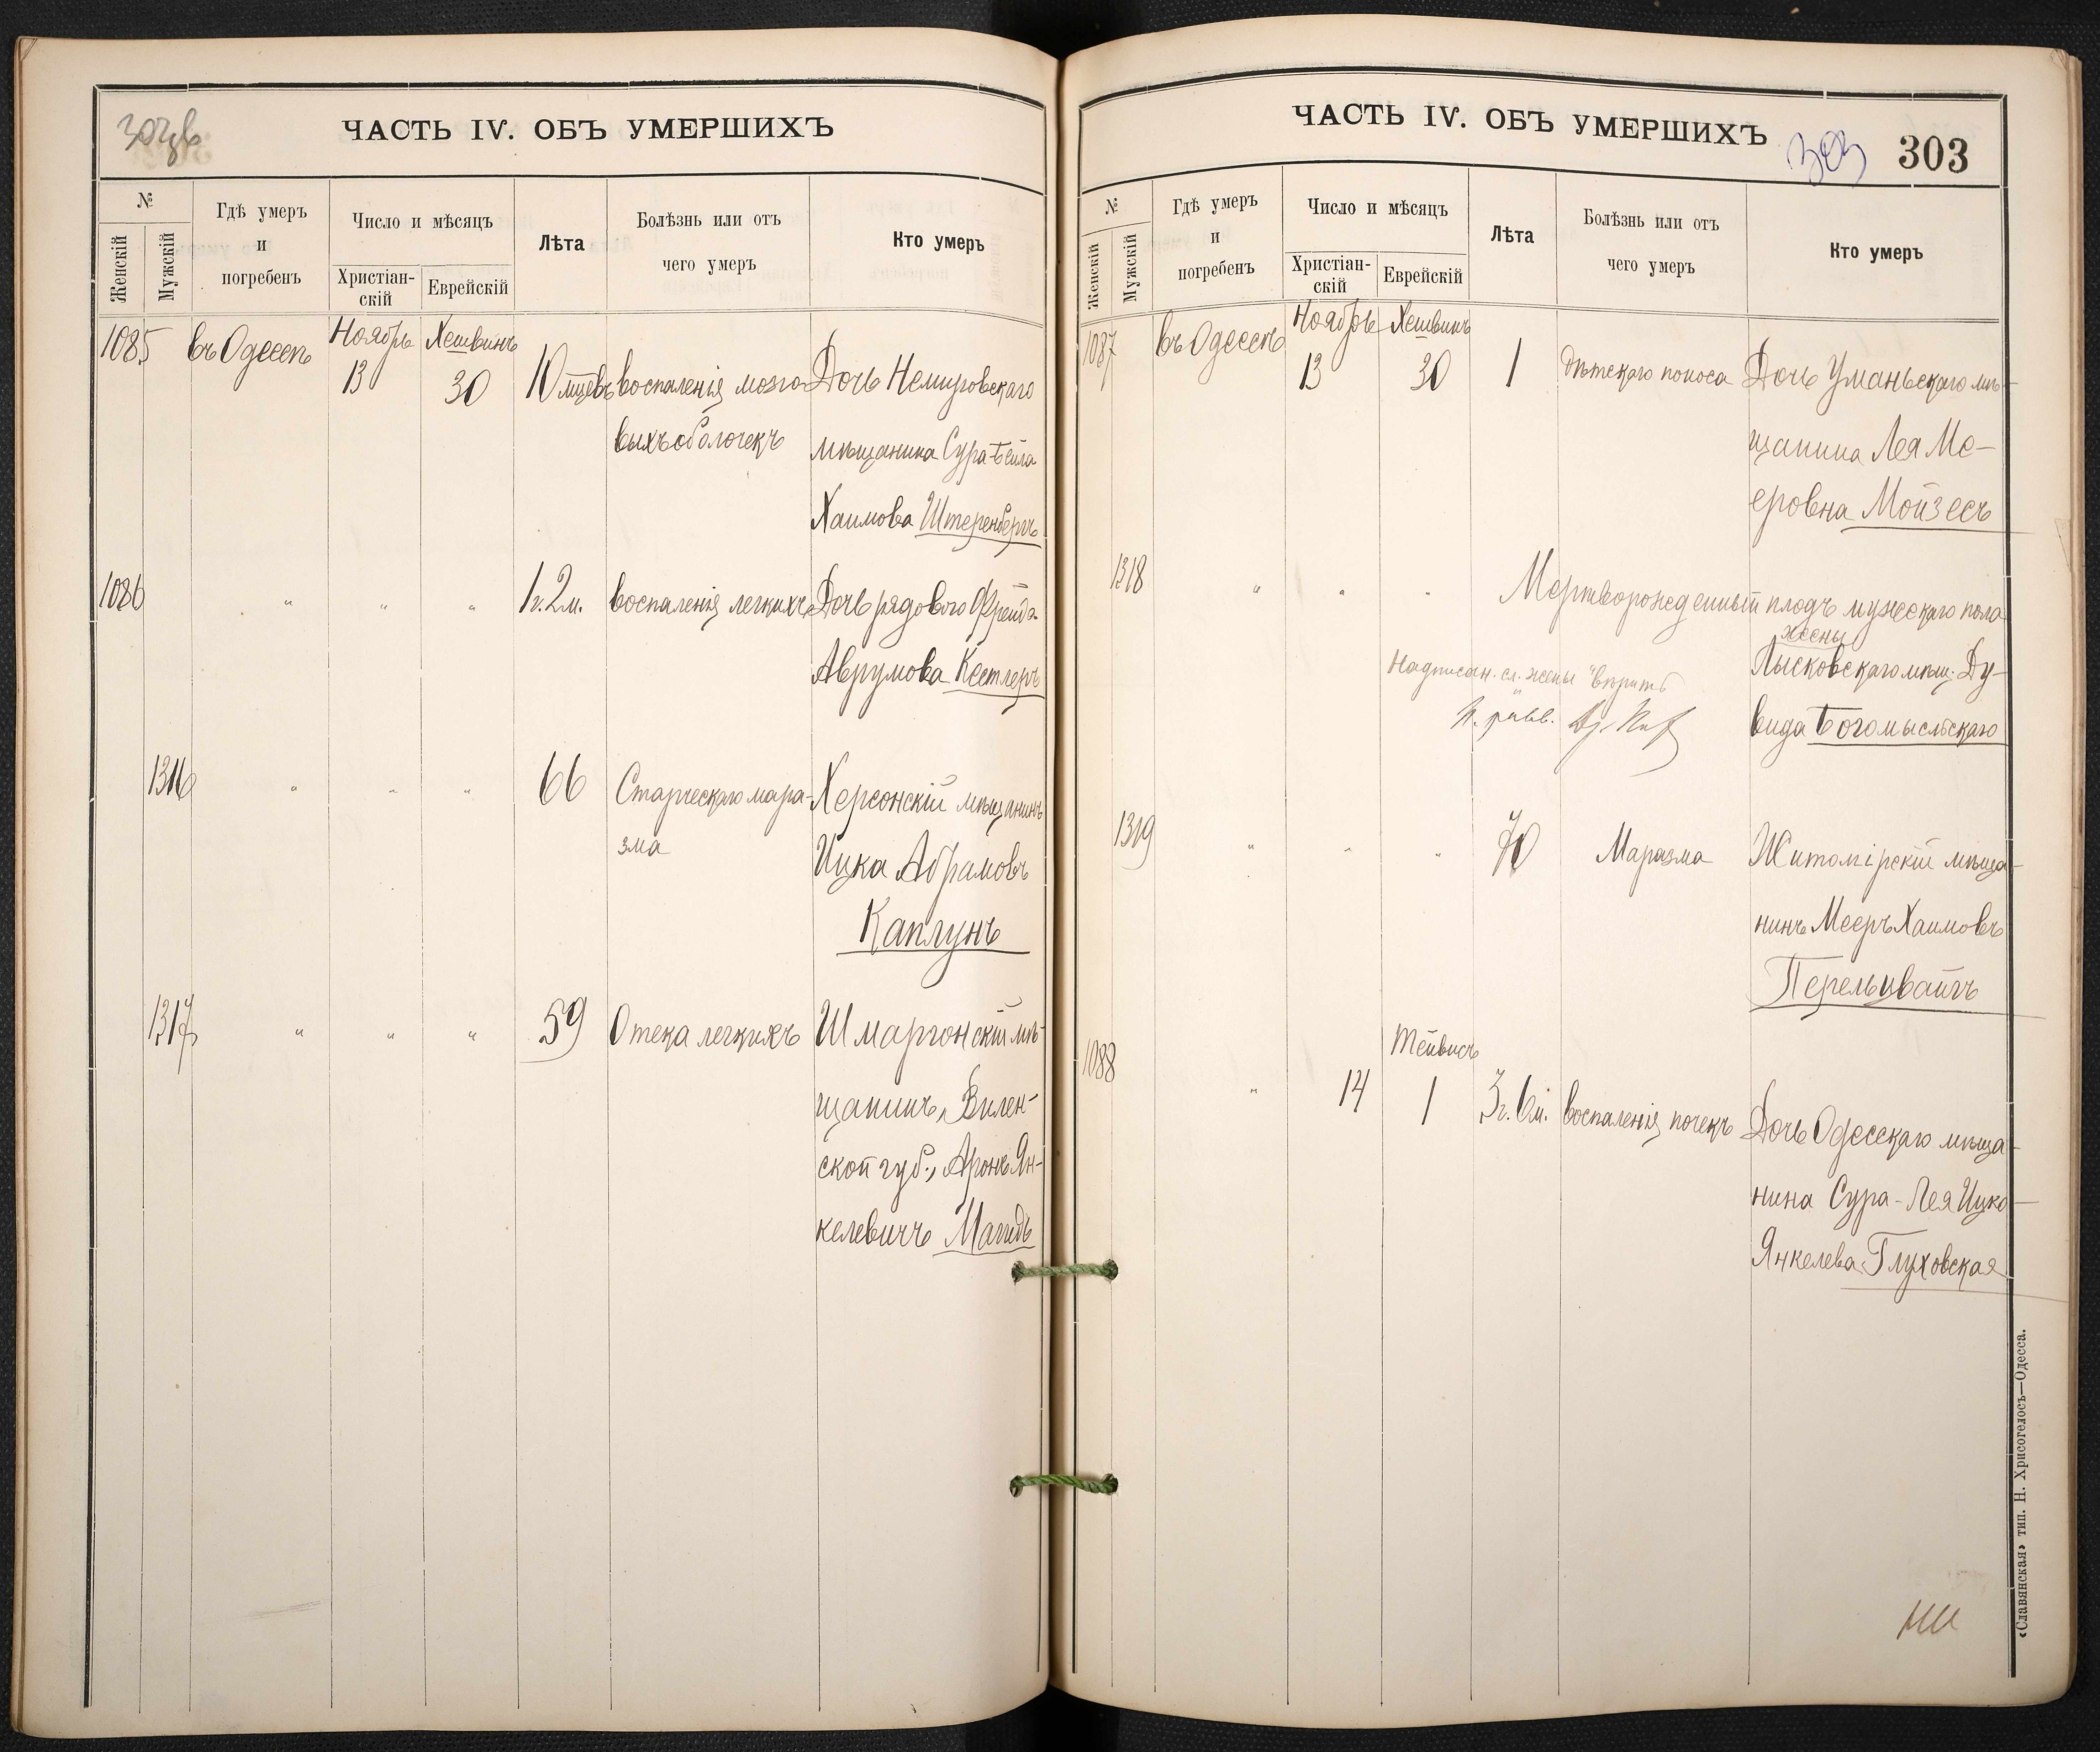 ЧАСТЬ IV. ОБЪ УМЕРШИХЪ
№
Женскій
Мужскій
Гдѣ умеръ
и
погребенъ
Число и мѣсяцъ
Христіан-
скій
Еврейскій
Лѣта
Болѣзнь или отъ
чего умеръ
Кто умеръ
1085 въ Одессѣ Ноябрь Хешвинъ
13 30 10 мцевъ воспаленія мозго Дочь Немировскаго
выхъ оболочекъ мѣщанина Сура-Бейла
Хаимова Штеренбергъ
1086 " " " 1г. 2м. воспаленія легкихъ Дочь рядового Фрейда
Аврумова Кестлеръ
1316 " " " 66 Старческаго мара- Херсонскій мѣщанинъ
зма Ицка Абрамовъ
Каплунъ
1317 " " " 59 Отека легкихъ Шмаргонскій мѣ-
щанинъ, Вилен-
ской губ., Аронъ Ян-
келевичъ Магидъ
ЧАСТЬ IV. ОБЪ УМЕРШИХЪ
303 303
№
Женскій
Мужскій
Гдѣ умеръ
и
погребенъ
Число и мѣсяцъ
Христіан-
скій
Еврейскій
Лѣта
Болѣзнь или отъ
чего умеръ
Кто умеръ
1087 въ Одессѣ Ноябрь Хешвинъ
13 30 1 дѣтскаго поноса Дочь Уманьскаго мѣ-
щанина Лея Ме-
еровна Мойзесъ
1318 " " " Мертворожденный плодъ мужескаго пола
жены
Лысковскаго мѣщ. Ду-
Надписан. сл. жены "вѣрить
вида Богомысльскаго
1319 " " " 70 Маразма Житомірскій мѣща-
нинъ Мееръ Хаимовъ
Перельцвайгъ
Тейвисъ
1088 " 14 1 3г. 6м. воспаленія почекъ Дочь Одесскаго мѣща-
нина Сура-Лея Ицко-
Янкелева Глуховская
«Славянская» тип. Н. Хрисогелосъ—Одесса.